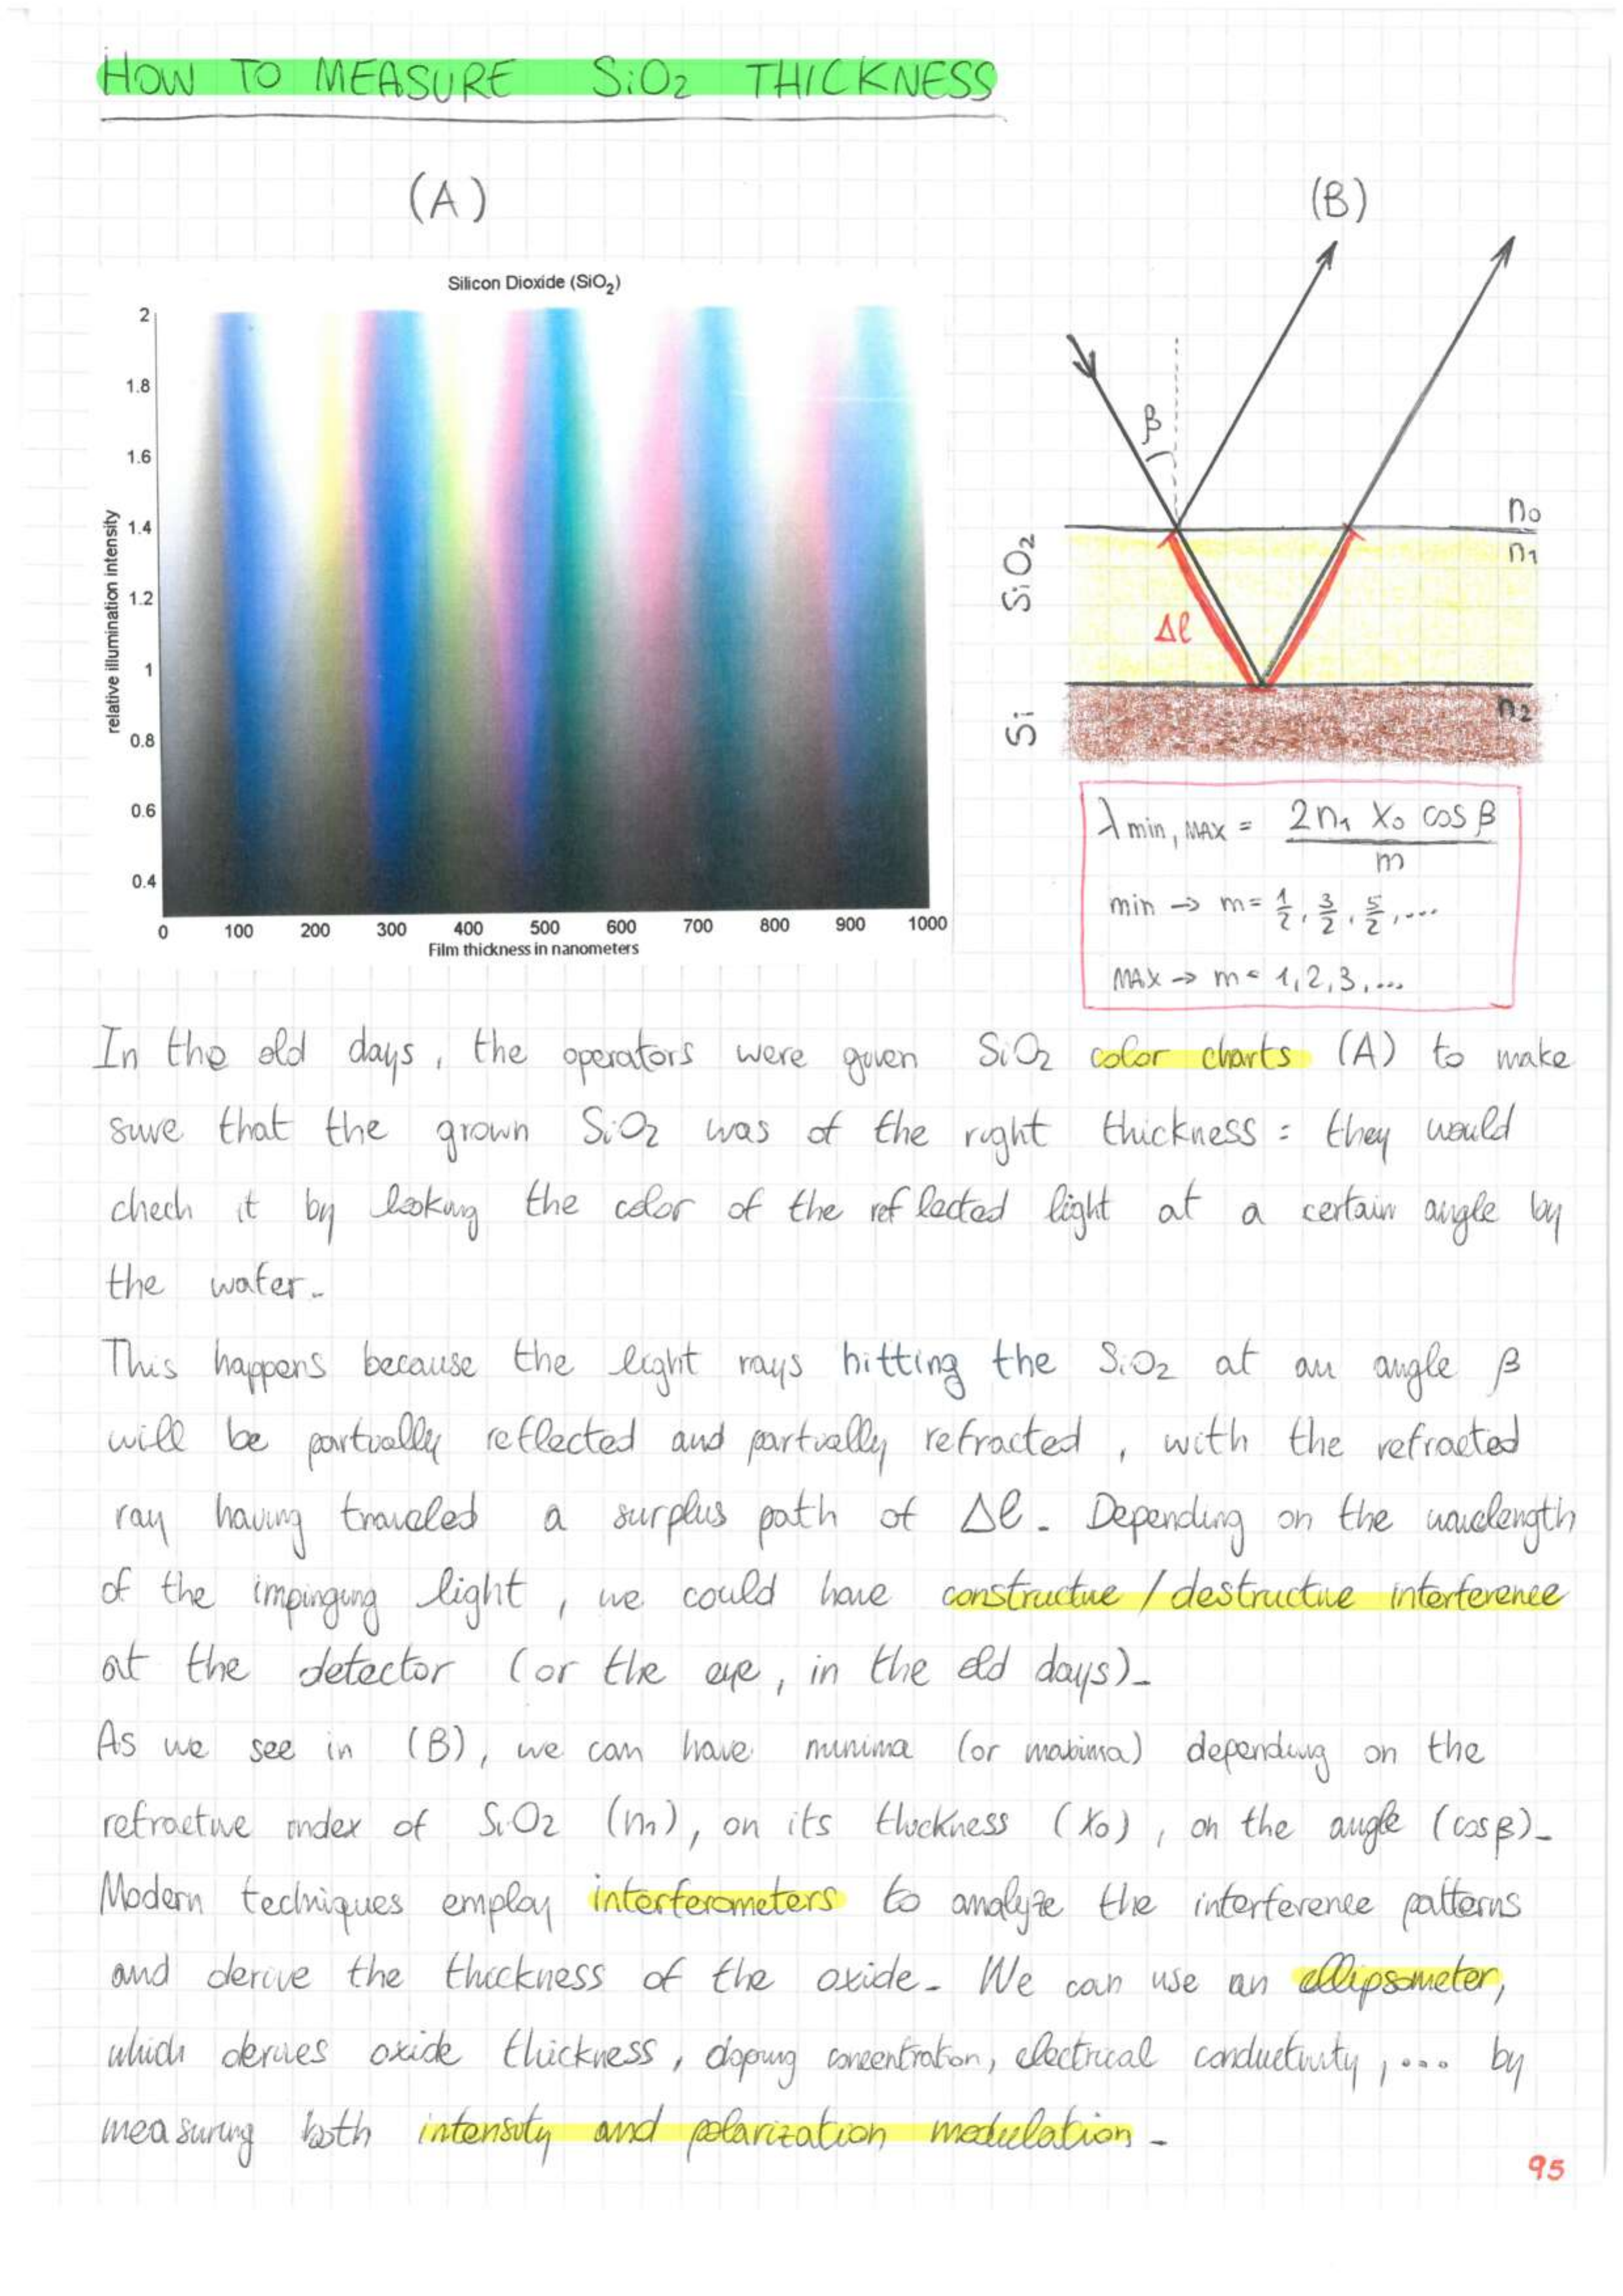 HOW TO MEASURE SiO2 THICKNESS
(A)
(B)
Silicon Dioxide (SiO2)
relative illumination intensity
2
1.8
1.6
1.4
1.2
1
0.8
0.6
0.4
0 100 200 300 400 500 600 700 800 900 1000
Film thickness in nanometers
β
n0
n1
n2
SiO2
Si
Δℓ
λ min, MAX = 2n1 X0 cos β / m
min → m = 1/2, 3/2, 5/2, ....
MAX → m = 1, 2, 3, ...
In the old days, the operators were given SiO2 color charts (A) to make
sure that the grown SiO2 was of the right thickness: they would
chech it by looking the color of the reflected light at a certain angle by
the water.
This happens because the light rays hitting the SiO2 at an angle β
will be partially reflected and partially refracted, with the refracted
ray having traveled a surplus path of Δℓ. Depending on the wavelength
of the impinging light, we could have constructive / destructive interference
at the detector (or the eye, in the old days).
As we see in (B), we can have minima (or maxima) depending on the
refractive index of SiO2 (n1), on its thickness (X0), on the angle (cosβ).
Modern techniques employ interferometers to analyze the interference patterns
and derive the thickness of the oxide. We can use an ellipsometer,
which derives oxide thickness, doping concentration, electrical conductivity, ... by
measuring both intensity and polarization modulation.
95